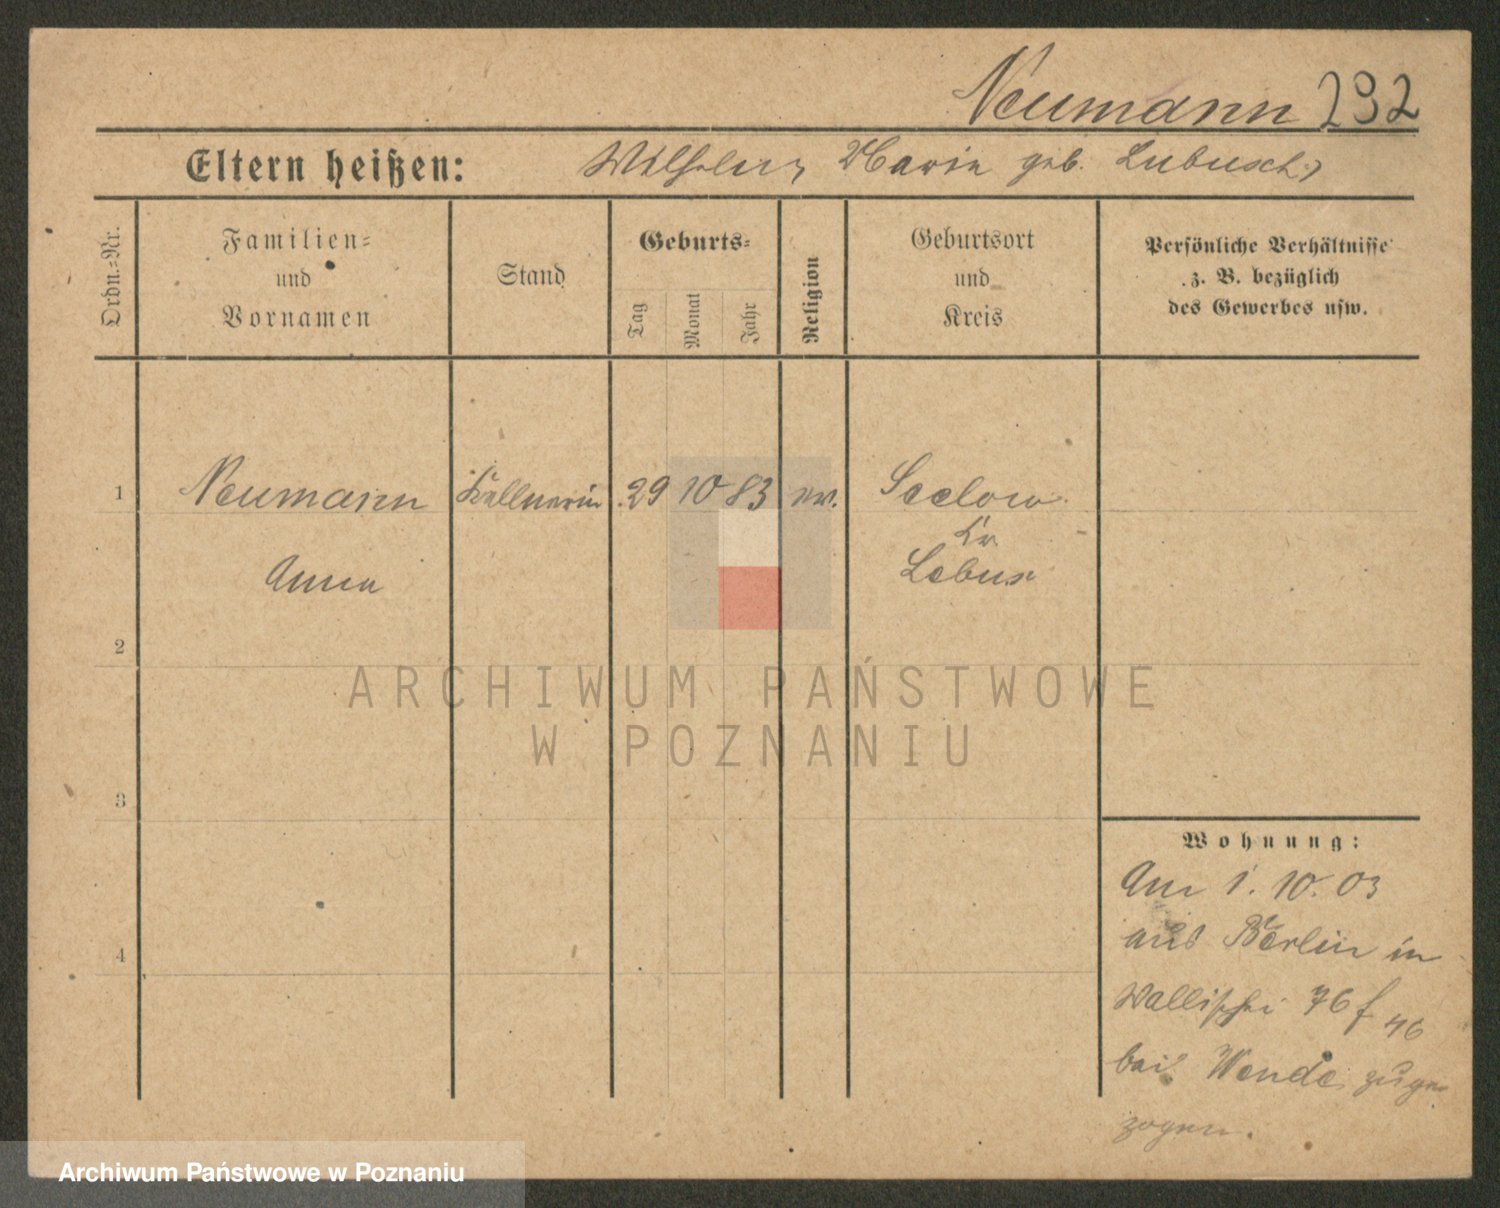 Neumann 292
Eltern heißen: Wilhelm, Marie geb. Lubusch
Ordn.=Nr.
Familien=
und
Vornamen
Stand
Geburts=
Tag
Monat
Jahr
Religion
Geburtsort
und
Kreis
Persönliche Verhältnisse
z. B. bezüglich
des Gewerbes usw.
1 Neumann Kellnerin 29 10 83 ev. Seelow
Kr
Anna Lebus
2
3
4
Wohnung:
Am 1. 10. 03
aus Berlin in
Wallischei 76
bei Wende zuge
zogen.
ARCHIWUM PAŃSTWOWE
W POZNANIU
Archiwum Państwowe w Poznaniu